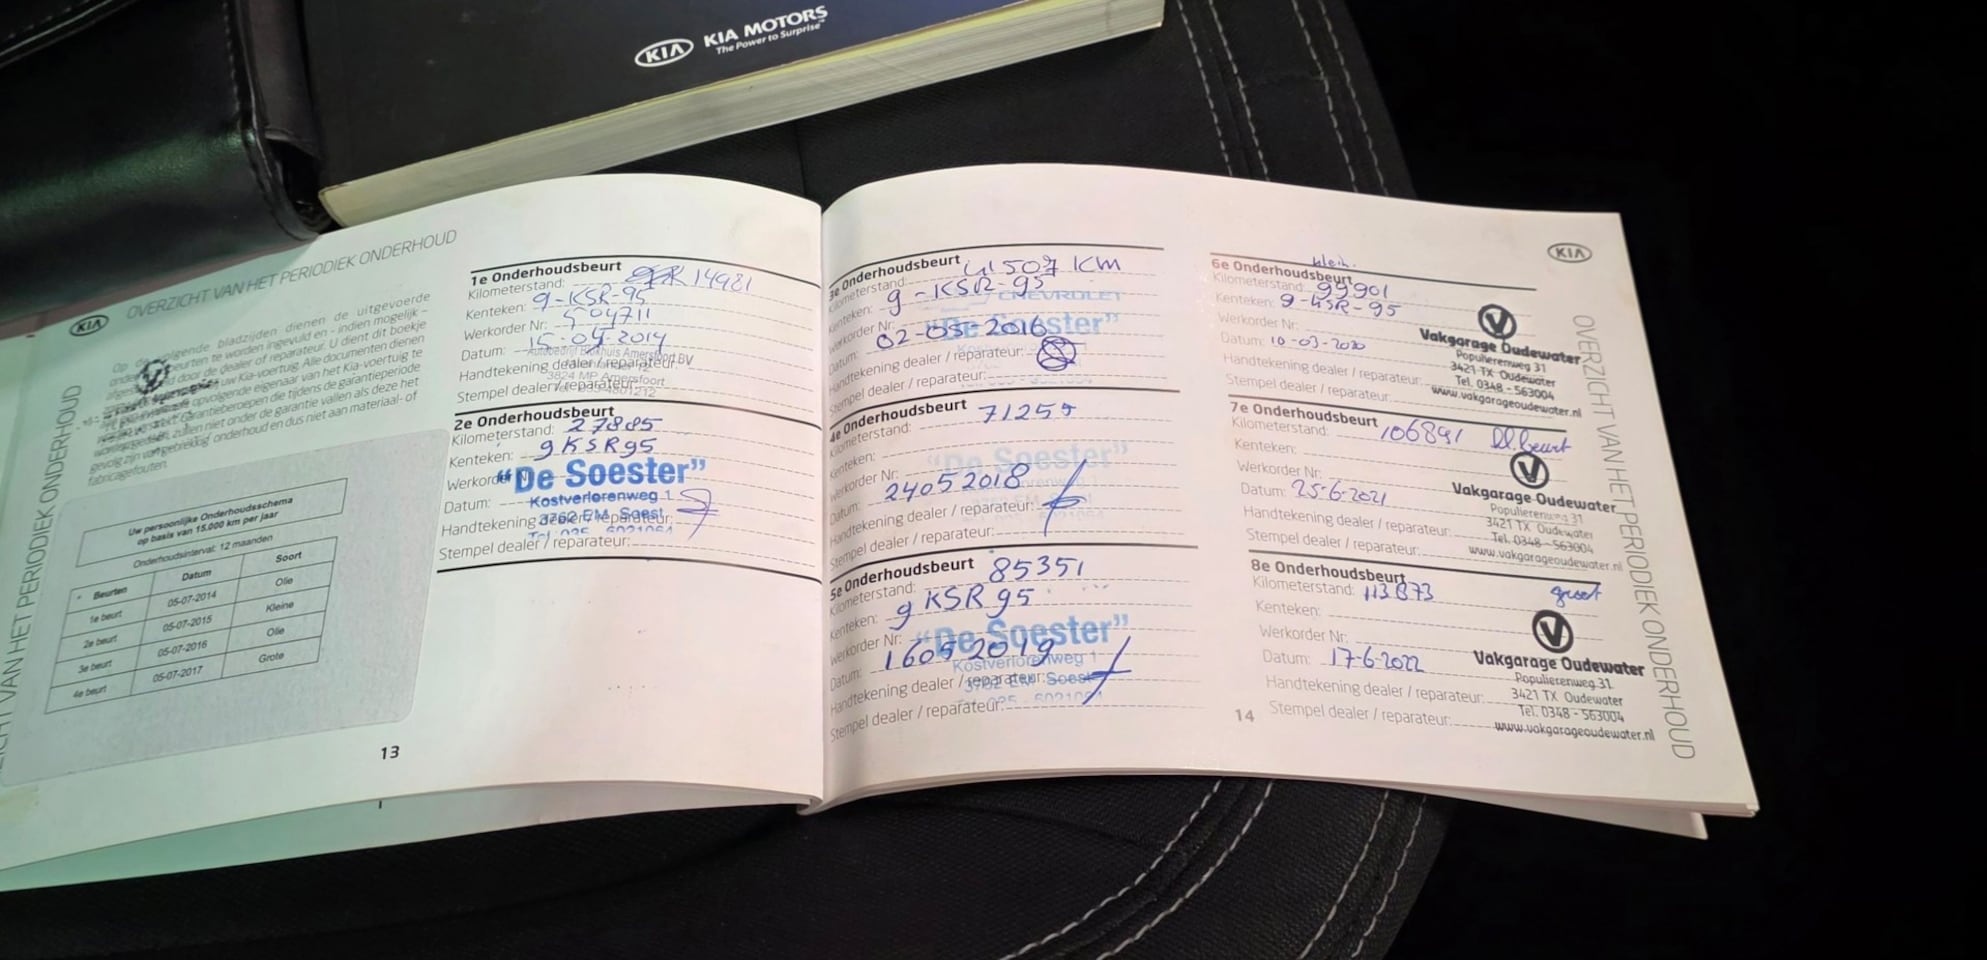 KIA KIA MOTORS
The Power to Surprise™
KIA OVERZICHT VAN HET PERIODIEK ONDERHOUD
OVERZICHT VAN HET PERIODIEK ONDERHOUD
volgende bladzijden dienen de uitgevoerde
beurten te worden ingevuld en - indien mogelijk -
door de dealer of reparateur. U dient dit boekje
uw Kia-voertuig. Alle documenten dienen
opvolgende eigenaar van het Kia-voertuig te
garantieberoepen die tijdens de garantieperiode
zullen niet onder de garantie vallen als deze het
gevolg zijn van gebrekkig onderhoud en dus niet aan materiaal- of
fabricagefouten.
Uw persoonlijke Onderhoudsschema
op basis van 15.000 km per jaar
Onderhoudsinterval: 12 maanden
Beurten Datum Soort
1e beurt 05-07-2014 Olie
2e beurt 05-07-2015 Kleine
3e beurt 05-07-2016 Olie
4e beurt 05-07-2017 Grote
13
1e Onderhoudsbeurt
Kilometerstand: 14981
Kenteken: 9-KSR-95
Werkorder Nr: 504711
Datum: 15-04-2014
Autobedrijf Blokhuis Amersfoort BV
Handtekening dealer / reparateur:
3824 MP Amersfoort
Stempel dealer / reparateur:
2e Onderhoudsbeurt
Kilometerstand: 27885
Kenteken: 9KSR95
Werkorder Nr:
"De Soester"
Datum: Kostverlorenweg 1
Handtekening dealer / reparateur:
3762 EM Soest
Tel. 035 - 6021064
Stempel dealer / reparateur:
3e Onderhoudsbeurt
Kilometerstand: 41507 KM
Kenteken: 9-KSR-95
CHEVROLET
Werkorder Nr:
"De Soester"
Datum: 02-05-2016
Handtekening dealer / reparateur:
Stempel dealer / reparateur:
4e Onderhoudsbeurt
Kilometerstand: 71257
Kenteken:
"De Soester"
Werkorder Nr:
Datum: 24052018
Handtekening dealer / reparateur:
Stempel dealer / reparateur:
5e Onderhoudsbeurt
Kilometerstand: 85351
Kenteken: 9KSR95
Werkorder Nr: "De Soester"
Datum: 16052019
Kostverlorenweg 1
Handtekening dealer / reparateur:
3762 EM Soest
Stempel dealer / reparateur:
035 - 6021064
KIA
klein.
6e Onderhoudsbeurt
Kilometerstand: 99901
Kenteken: 9-KSR-95
Werkorder Nr:
Datum: 10-03-2020
Handtekening dealer / reparateur:
Stempel dealer / reparateur:
Vakgarage Oudewater
Populierenweg 31
3421 TX Oudewater
Tel. 0348 - 563004
www.vakgarageoudewater.nl
7e Onderhoudsbeurt
Kilometerstand: 106891
Kenteken:
Werkorder Nr:
Datum: 25-6-2021
Handtekening dealer / reparateur:
Stempel dealer / reparateur:
Vakgarage Oudewater
Populierenweg 31
3421 TX Oudewater
Tel. 0348 - 563004
www.vakgarageoudewater.nl
8e Onderhoudsbeurt
Kilometerstand: 113873 groot
Kenteken:
Werkorder Nr:
Datum: 17-6-2022
Handtekening dealer / reparateur:
Stempel dealer / reparateur:
Vakgarage Oudewater
Populierenweg 31
3421 TX Oudewater
Tel. 0348 - 563004
www.vakgarageoudewater.nl
14
OVERZICHT VAN HET PERIODIEK ONDERHOUD